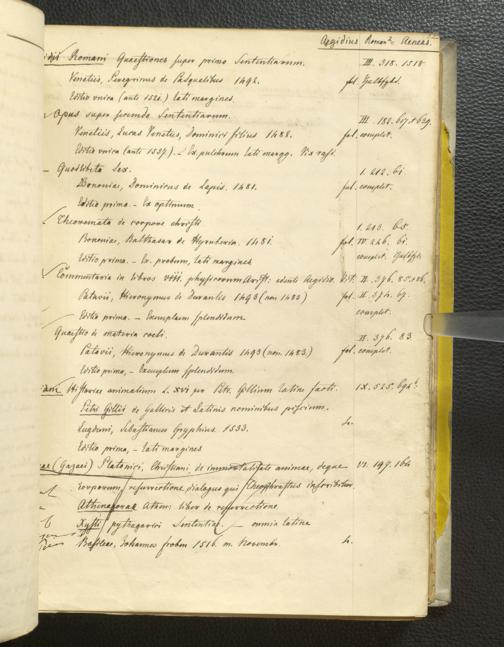 Aegidius Roman. Aeneas.
Romani Quaestiones super primo Sententiarum. III. 318. 1518
Venetiis, Peregrinus de Pasqualibus 1492. fol.
Editio unica (ante 1521.) lati margines.
Opus super secundo Sententiarum. III. 182. 67. + 629.
Venetiis, Lucas Venetus, Dominici filius 1482. fol. complet.
Editio unica (ante 1557.) — Ex. pulchrum lati margg.
Quodlibeta Sex. 1. 212. 61.
Bononiae, Dominicus de Lapis. 1481. fol. complet.
Editio prima. — Ex optimum.
Theoremata de corpore christi. 1. 203. 65.
Bononiae, Balthasar de Hyruberia. 1481. fol. IV. 226. 61.
Editio prima. — Ex. probum, lati margines complet.
Commentaria in libros VIII. physicorum Arist. edente Aegidio. II. 376. 85.
Patavii, Hieronymus de Durantis 1493 (non 1483) fol. II. 374. 67.
complet.
Editio prima. — Exemplum splendidum.
Quaestio de materia coeli. II. 376. 83
Patavii, Hieronymus de Durantis 1493 (non. 1483.) fol. complet.
Editio prima, — Exemplum splendidum.
Histories animalium L. XVI per Petr. Gillium latine facti. IX. 525. 692.
Petri Gillii de Gallicis et Latinis nominibus piscium.
Lugduni, Sebastianus Gryphius 1533. 4.
Editio prima, — lati margines
(Gazaei) Platonici, Christiani, de immortalitate animae, deque VI. 149. 164
corporum resurrectione dialogus qui Theophrastus inscribitur.
Athenagorae Athen. liber de resurrectione.
Xysti pytagorici Sententiae — omnia latina
Basileae, Johannes froben 1516. m. Novembr. 4.